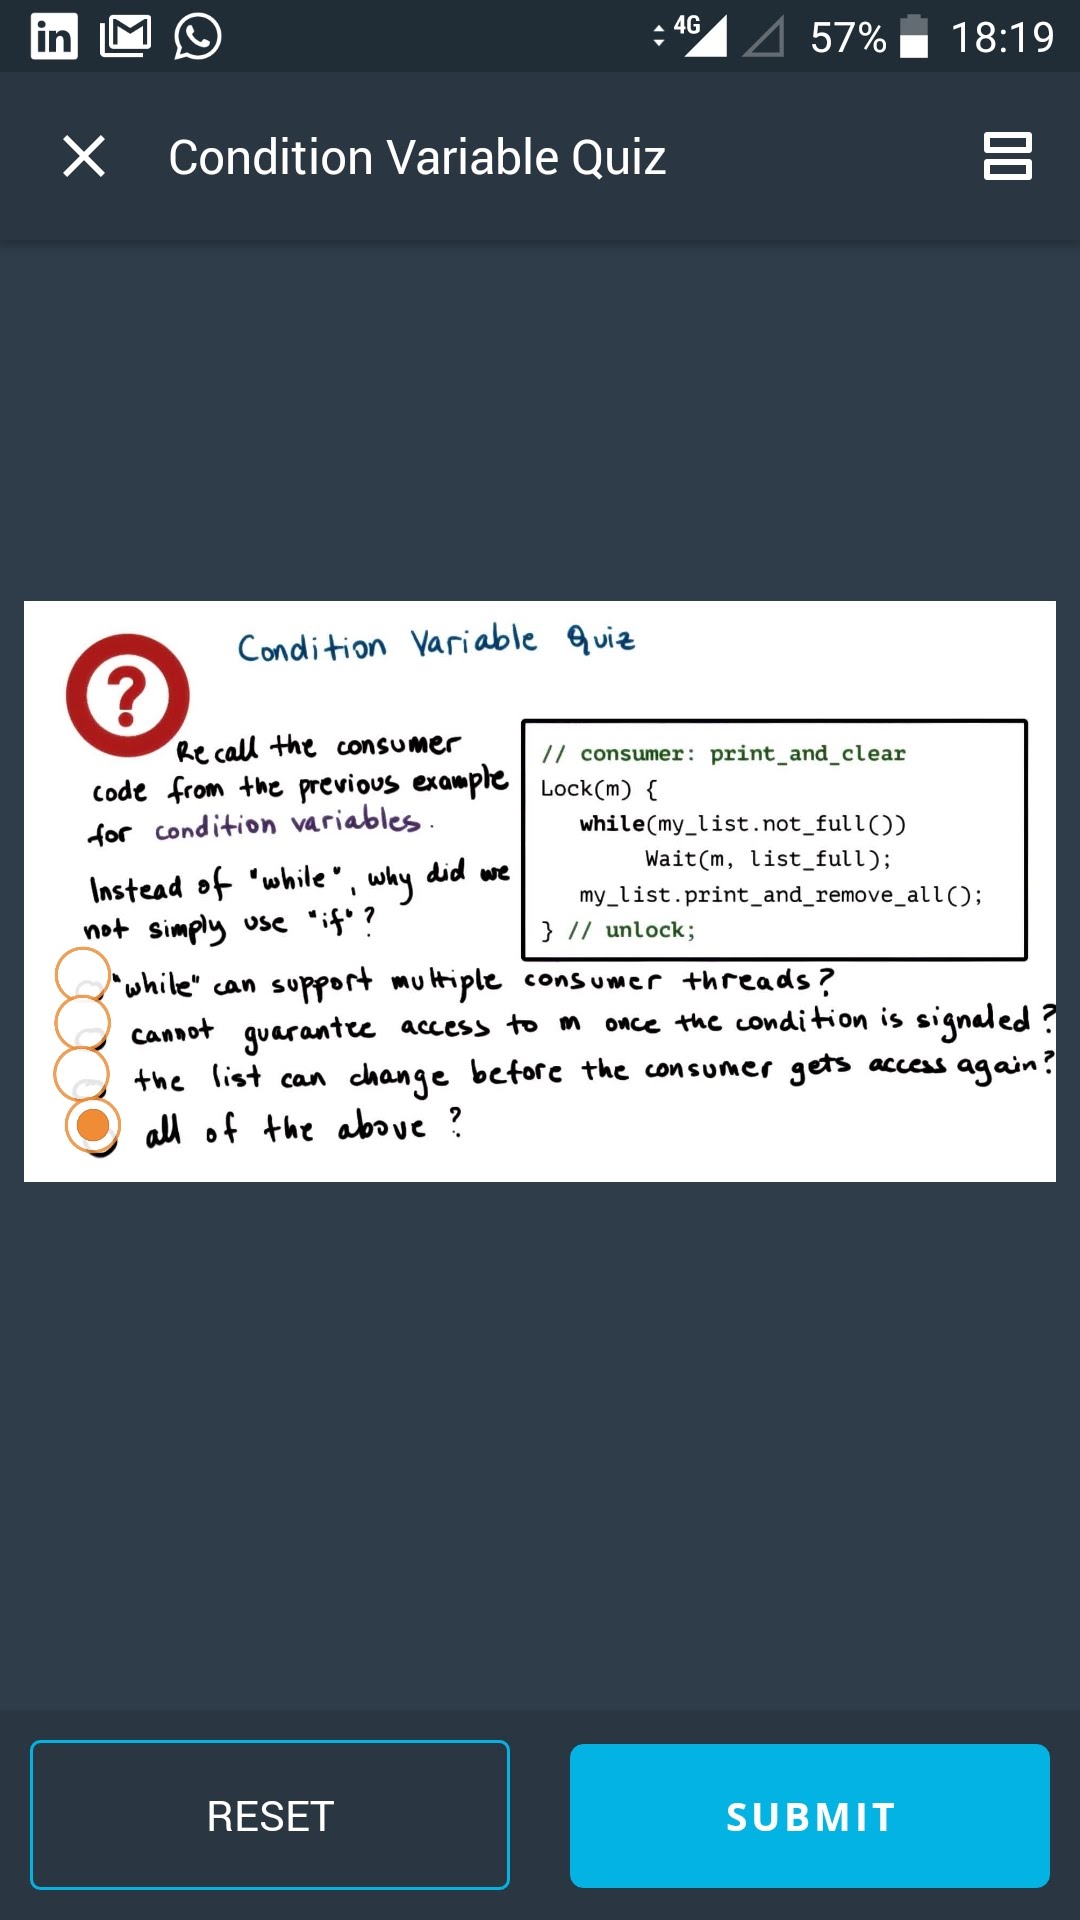 in M 4G 57% 18:19
Condition Variable Quiz
? Condition Variable Quiz
Recall the consumer
code from the previous example
for condition variables.
Instead of "while", why did we
not simply use "if"?
// consumer: print_and_clear
Lock(m) {
while(my_list.not_full())
Wait(m, list_full);
my_list.print_and_remove_all();
} // unlock;
"while" can support multiple consumer threads?
cannot guarantee access to m once the condition is signaled?
the list can change before the consumer gets access again?
all of the above?
RESET SUBMIT